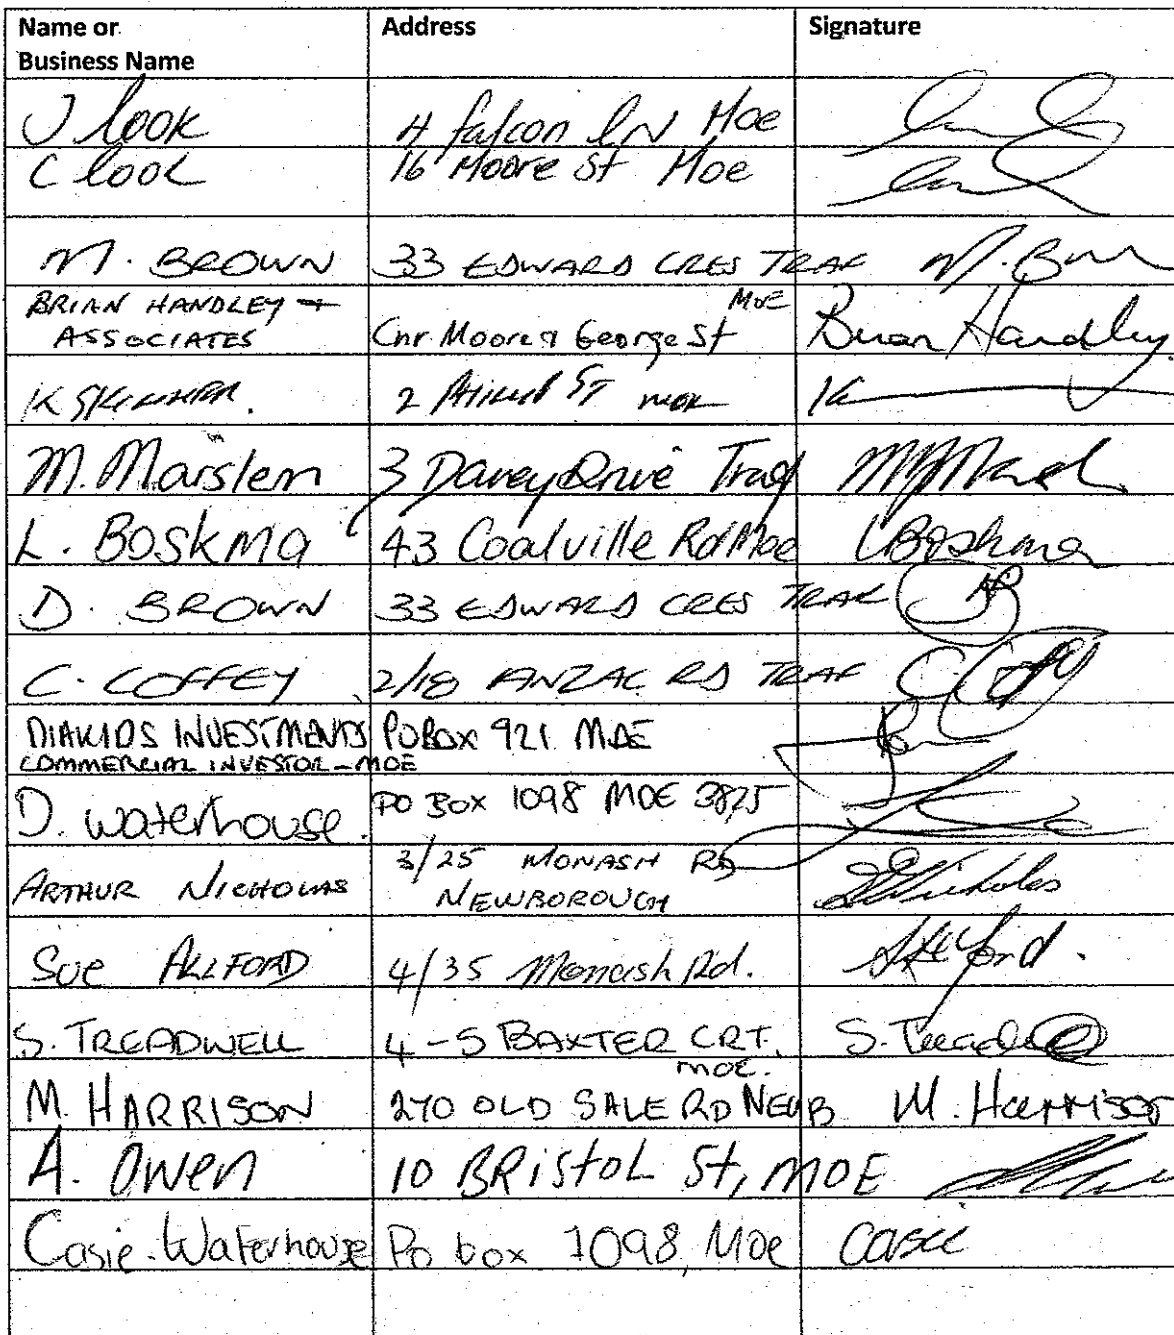 Name or Address Signature
Business Name
J look 4 falcon LN Moe
C look 16 Moore St Moe
M. BROWN 33 EDWARD CRES TRAF M. B
BRIAN HANDLEY + MOE
ASSOCIATES Cnr Moore & George St Brian Handley
K SKINNER. 2 ST MOE K
M. Marslen 3 Davey Drive Traf
L. BOSKMA 43 Coalville Rd Moe L Boskma
D. BROWN 33 EDWARD CRES TRAF
C. COFFEY 2/18 ANZAC RD TRAF C Coffey
DIAKIDS INVESTMENTS PO BOX 921 MOE
COMMERCIAL INVESTOR - MOE
D. Waterhouse. PO BOX 1098 MOE 3825
ARTHUR NICHOLAS 3/25 MONASH RD Nicholas
NEWBOROUGH
Sue ALLFORD 4/35 Monash Rd. S Allford.
S. TREADWELL 4-5 BAXTER CRT. S. Treadwell
MOE.
M. HARRISON 270 OLD SALE RD NEWB M. Harrison
A. Owen 10 BRistoL St, MOE
Casie Waterhouse Po box 1098, Moe Casie